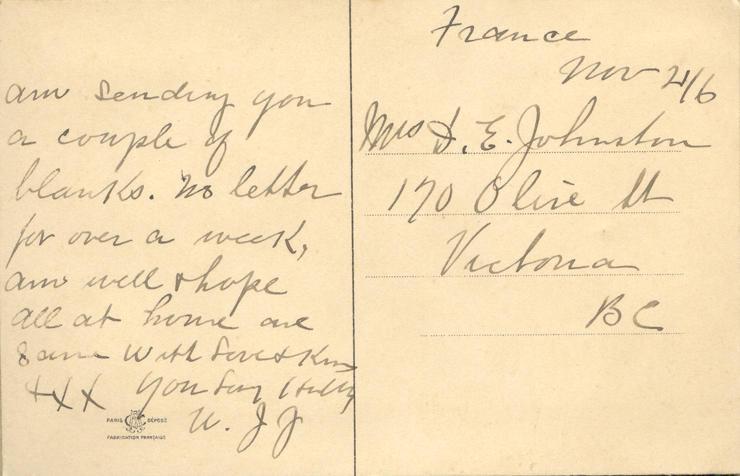 am sending you
a couple of
blanks. No letter
for over a week,
am well & hope
all at home are
same With Love &
XXX your
W. J J
PARIS DÉPOSÉ
FABRICATION FRANÇAISE
France
Nov 21/6
Mrs D. E. Johnston
170 Olive St
Victoria
BC